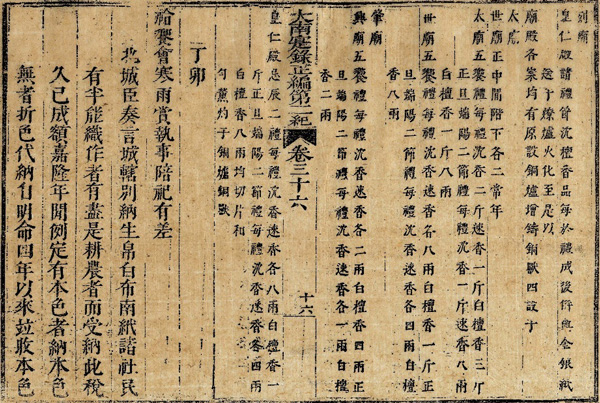 列廟
皇仁殿諸禮皆沉檀香品每於禮成後併與金銀紙
送于燎爐火化至是以
廟殿各案均有原設銅爐增鑄銅獸四設于
太廟
世廟正中間陛下各二常年
太廟五饗禮每禮沉香二斤速香一斤白檀香三斤
正旦端陽二節禮每禮沉香一斤速香八兩
白檀香一斤八兩
世廟五饗禮每禮沉香速香各八兩白檀香一斤正
旦端陽二節禮每禮沉香速香各四兩白檀
香八兩
肇廟
興廟五饗禮每禮沉香速香各二兩白檀香四兩正
旦端陽二節禮每禮沉香速香各一兩白檀
香二兩
大南寔錄正編第二紀 卷三十六 十六
皇仁殿忌辰二禮每禮沉香速香各八兩白檀香一
斤正旦端陽二節禮每禮沉香速香各四兩
白檀香八兩均切片和
勻薰灼于銅爐銅獸
丁卯
祫饗會寒雨賞執事陪祀有差
北城臣奏言城轄別納生帛白布南紙諸社民
有半能織作者有盡是耕農者而受納此稅
久已成額嘉隆年間例定有本色者納本色
無者折色代納自明命四年以來並收本色